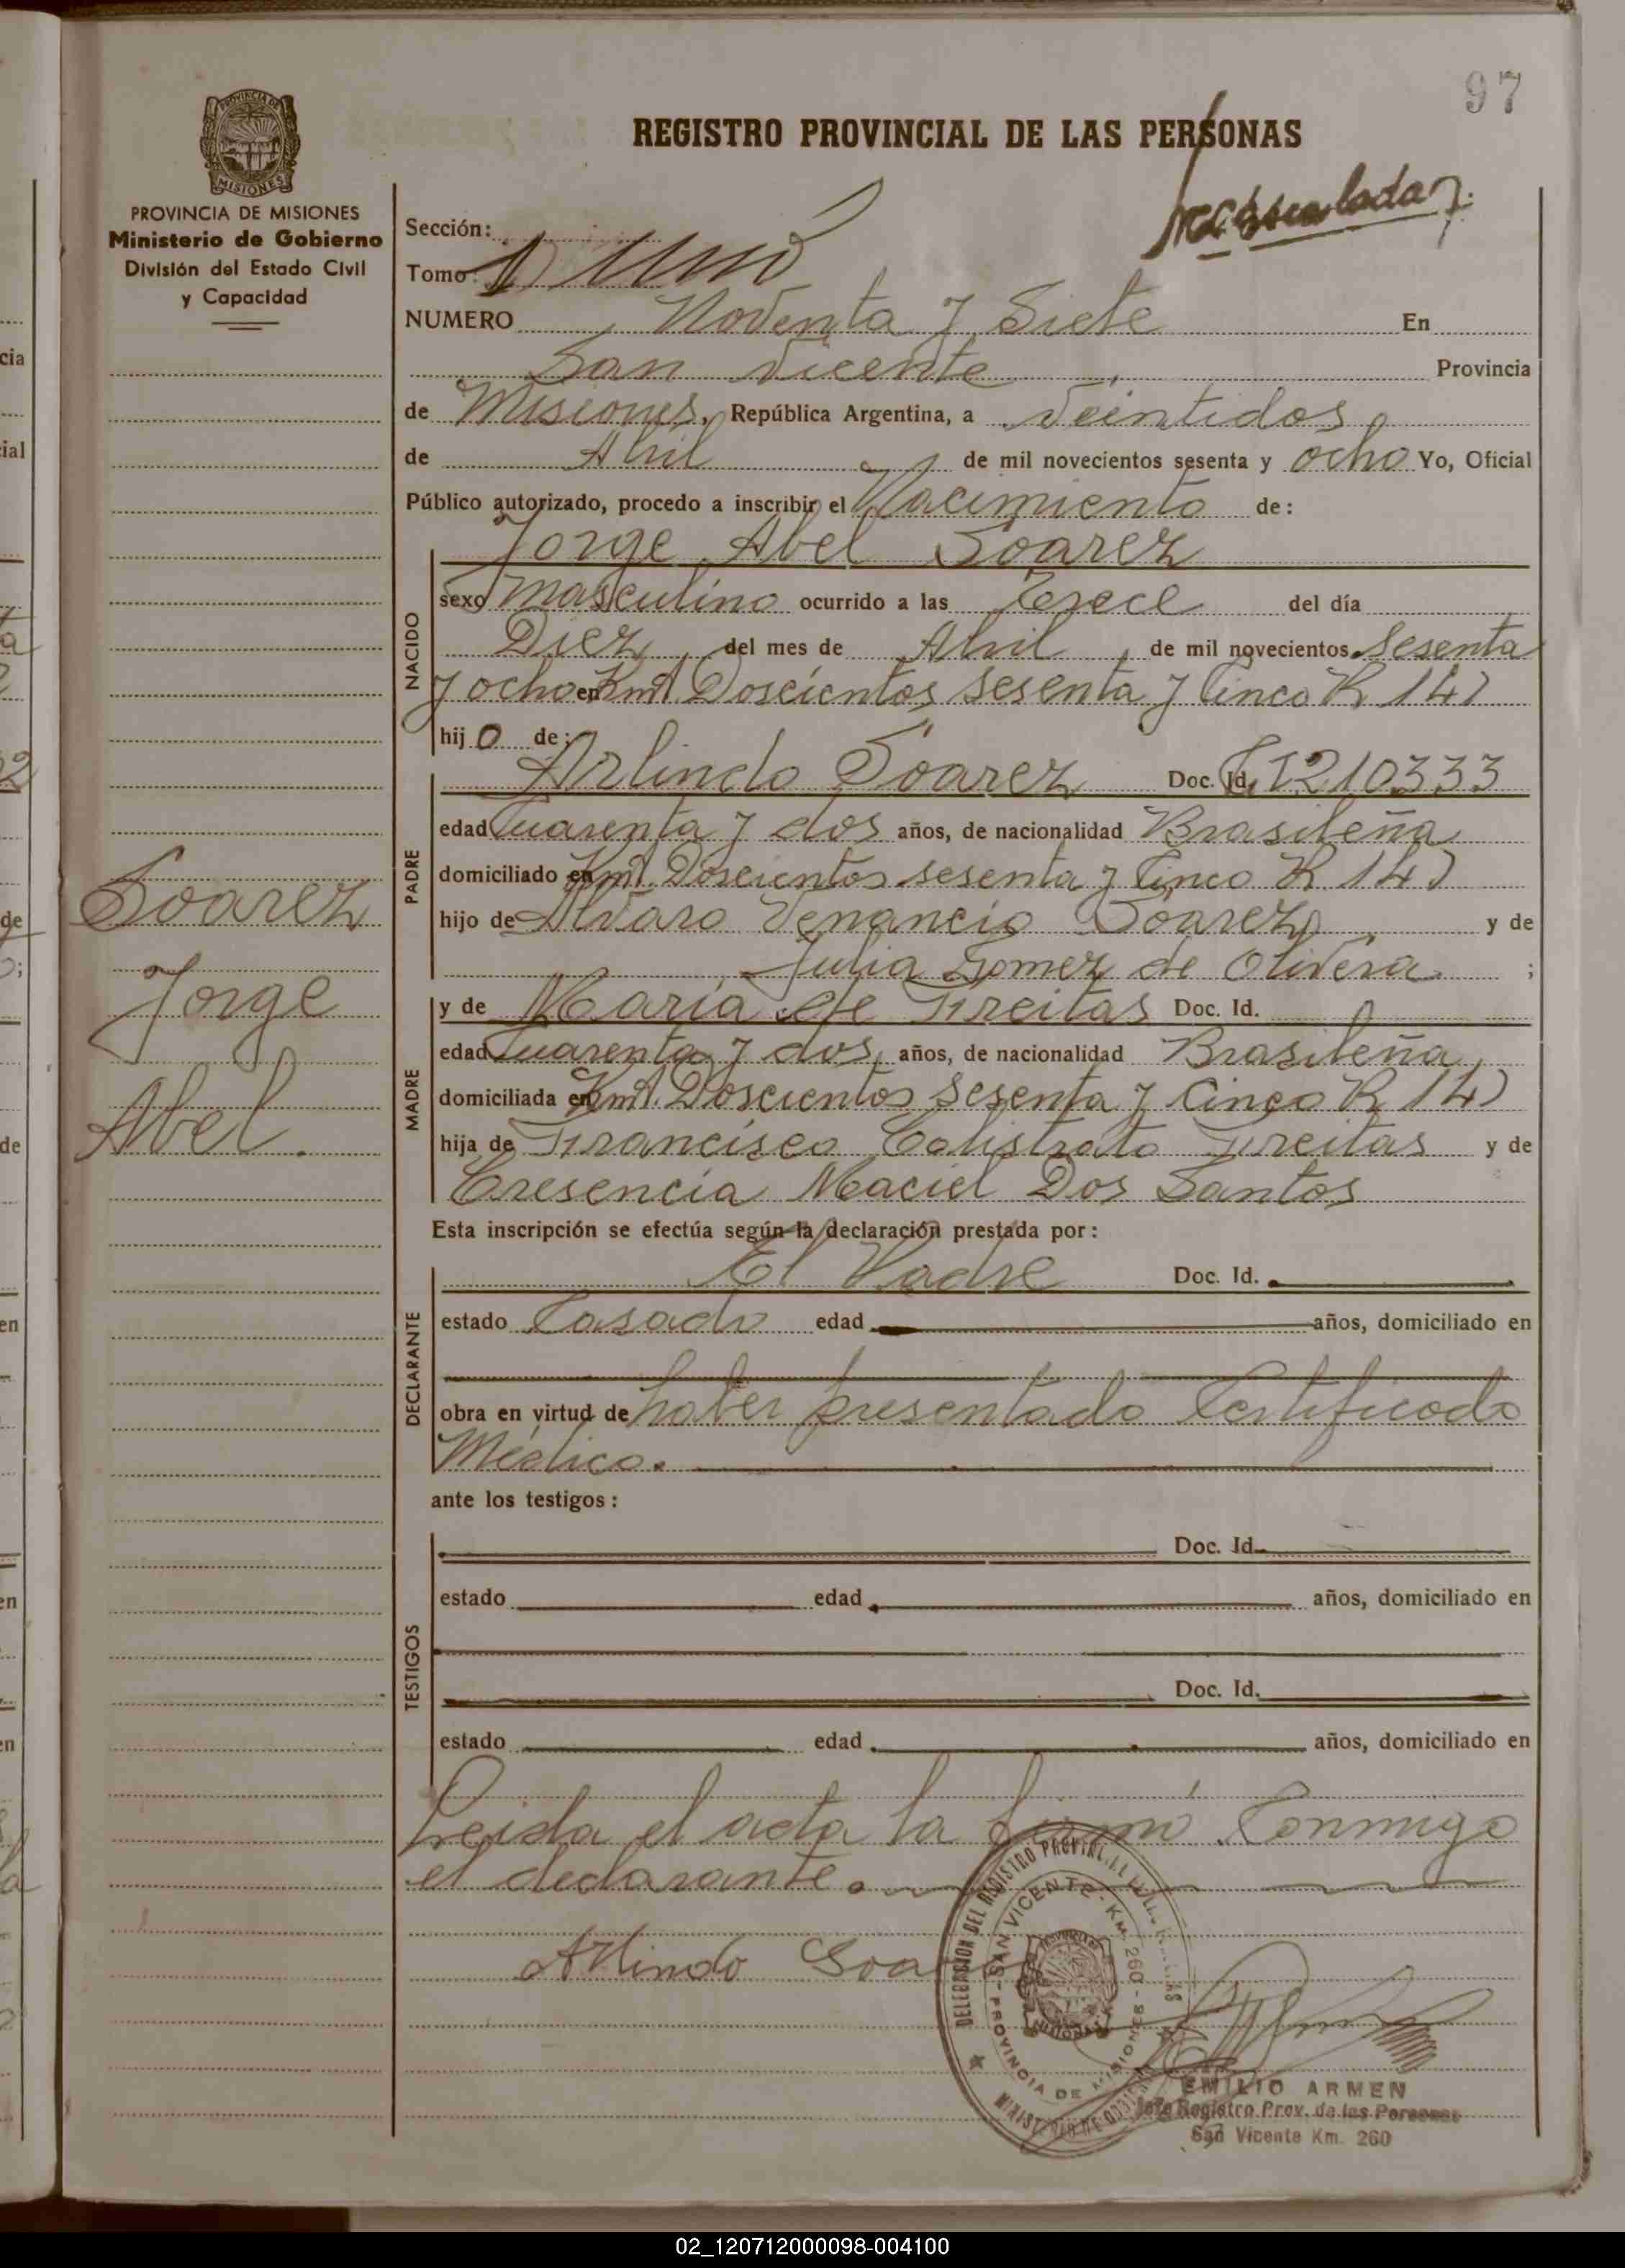 97
REGISTRO PROVINCIAL DE LAS PERSONAS
PROVINCIA DE MISIONES
Ministerio de Gobierno
División del Estado Civil
y Capacidad
Sección:
Tomo: 1) Uno
NUMERO Noventa y Siete En
San Vicente Provincia
de Misiones, República Argentina, a Veintidos
de Abril de mil novecientos sesenta y ocho Yo, Oficial
Público autorizado, procedo a inscribir el Nacimiento de:
Jorge Abel Soarez
NACIDO
sexo Masculino ocurrido a las Trece del día
Diez del mes de Abril de mil novecientos Sesenta
y ocho en Kmt. Doscientos sesenta y Cinco R 14)
hijo de:
Arlindo Soarez Doc. Id. 1210333
PADRE
edad Cuarenta y dos años, de nacionalidad Brasileña
domiciliado en Kmt. Doscientos sesenta y Cinco R 14)
hijo de Alvaro Venancio Soarez y de
Julia Gomez de Olivera ;
y de Maria de Freitas Doc. Id.
MADRE
edad Cuarenta y dos, años, de nacionalidad Brasileña
domiciliada en Kmt. Doscientos Sesenta y Cinco R 14)
hija de Francisco Calistrato Freitas y de
Cresencia Maciel Dos Santos
Soarez
Jorge
Abel.
Esta inscripción se efectúa según la declaración prestada por:
El Padre Doc. Id.
DECLARANTE
estado Casado edad años, domiciliado en
obra en virtud de haber presentado Certificado
Médico.
ante los testigos:
Doc. Id.
TESTIGOS
estado edad años, domiciliado en
Doc. Id.
estado edad años, domiciliado en
Leida el acta la firmó Conmigo
el declarante.
Arlindo Soarez
DELEGACION DEL REGISTRO PROVINCIAL DE LAS PERSONAS
SAN VICENTE - KM. 260 - PROVINCIA DE MISIONES
MINISTERIO DE GOBIERNO
EMILIO ARMEN
Jefe Registro Prov. de las Personas
San Vicente Km. 260
02_120712000098-004100